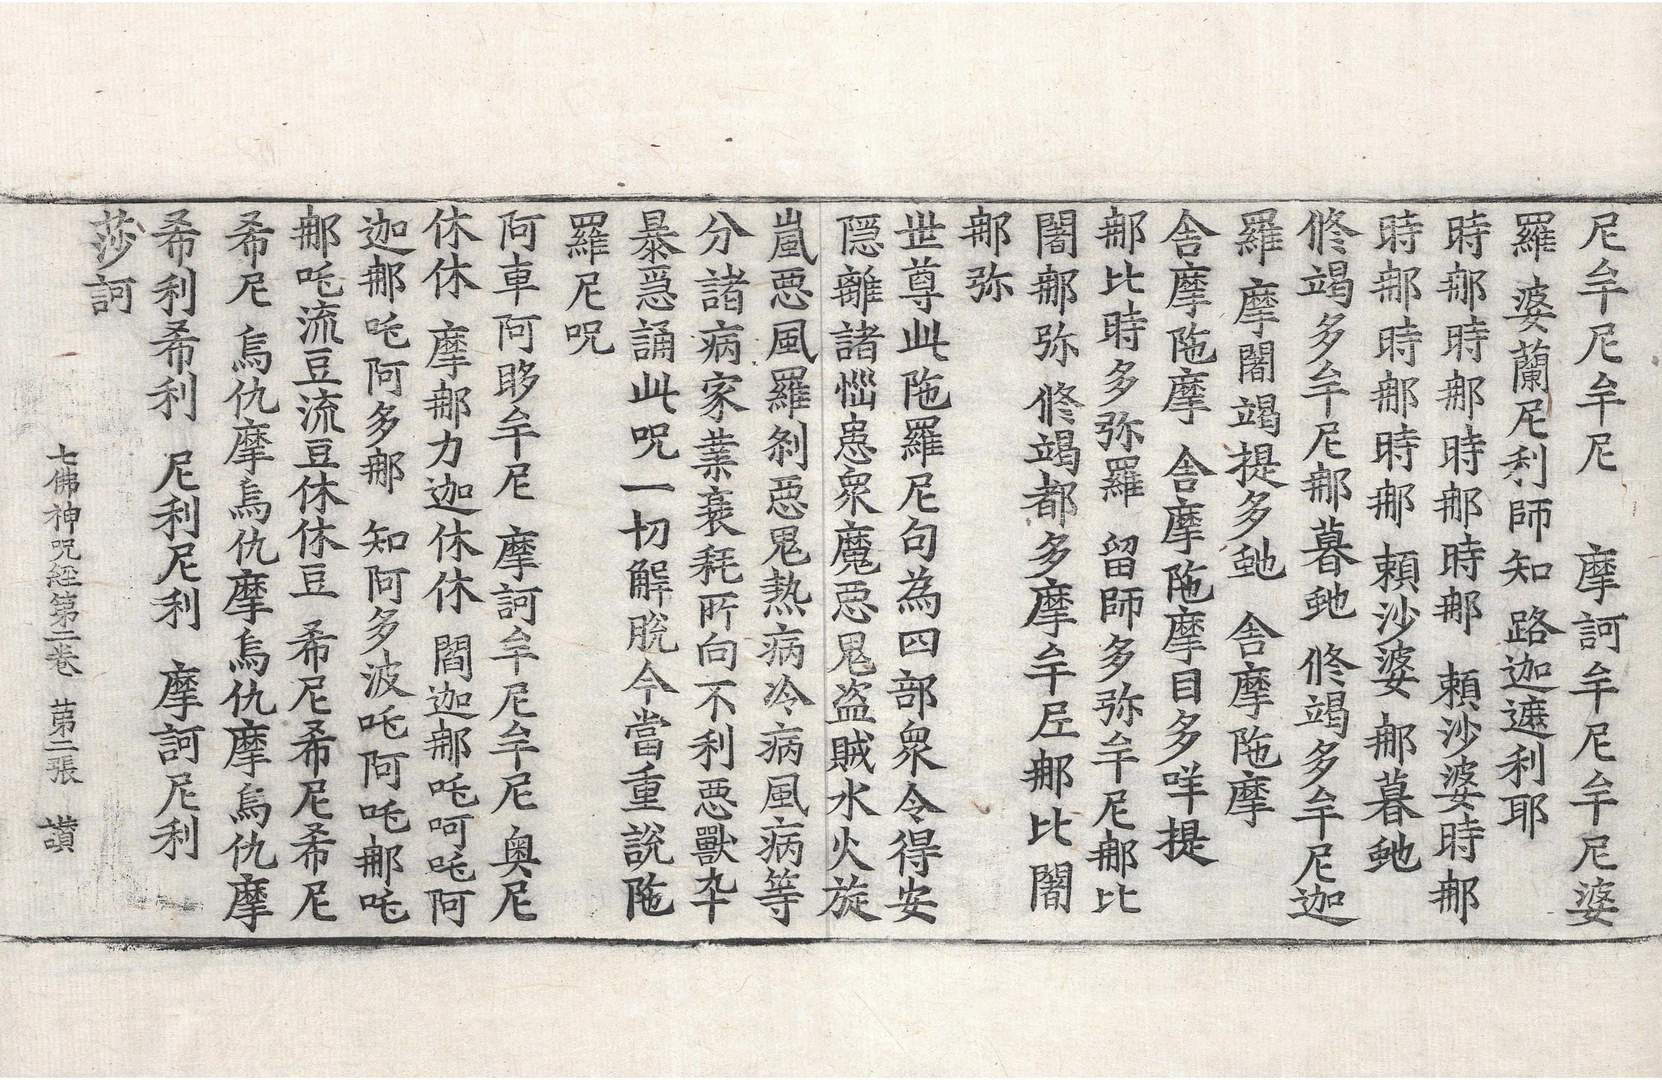 尼牟尼牟尼 摩訶牟尼牟尼婆
羅 婆蘭尼利師知 路迦遮利耶
時那時那時那時那 頼沙婆時那
時那時那時那 頼沙婆 那暮虵
修竭多牟尼那暮虵 修竭多牟尼迦
羅 摩闍竭提多虵 舎摩陁摩
舎摩陁摩 舎摩陁摩目多咩提
那比時多弥羅 留師多弥牟尼那比
闍那弥 修竭都多摩牟尼那比闍
那弥
世尊此陁羅尼句為四部衆令得安
隱離諸惱患衆魔惡鬼盗賊水火旋
嵐惡風羅刹惡鬼熱病冷病風病等
分諸病家業衰耗所向不利惡獸卒
暴急誦此呪一切解脫今當重說陁
羅尼呪
阿車阿𭾱牟尼 摩訶牟尼牟尼奧尼
休休 摩那力迦休休 閻迦那吒呵吒阿
迦那吒阿多那 知阿多波吒阿吒那吒
那吒流豆流豆休休豆 希尼希尼希尼
希尼 烏仇摩烏仇摩烏仇摩烏仇摩
希利希利 尼利尼利 摩訶尼利
莎訶
七佛神呪經第二卷 苐二張 讃